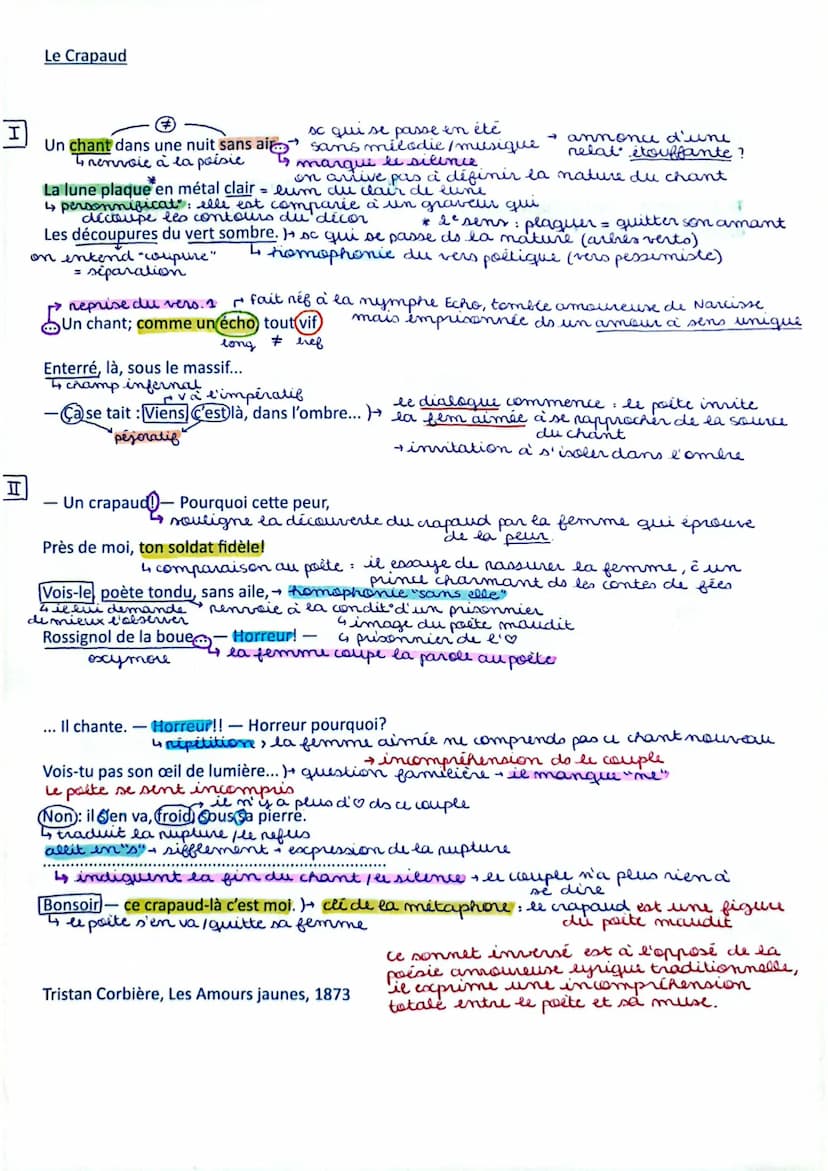 Le Crapaud
I
≠
sc qui se passe en été
Un chant dans une nuit sans air... → sans mélodie/musique → annonce d'une
relat° étouffante ?
↳ renvoie à la poésie ↳ marque le silence
on arrive pas à définir la nature du chant
La lune plaque* en métal clair = lum du clair de lune
↳ personnificat° : elle est comparée à un graveur qui
découpe les contours du décor * 2e sens : plaquer = quitter son amant
Les découpures du vert sombre. )→ sc qui se passe ds la nature (arbres verts)
on entend "coupure" ↳ homophonie du vers poétique (vers pessimiste)
= séparation
reprise du vers.1 fait réf à la nymphe Echo, tombée amoureuse de Narcisse
...Un chant; comme un écho, tout vif mais emprisonnée ds un amour à sens unique
long ≠ bref
Enterré, là, sous le massif...
↳ champ infernal
v à l'impératif
— Ça se tait : Viens, c'est là, dans l'ombre... )→ le dialogue commence : le poète invite
la fem aimée à se rapprocher de la source
du chant
péjoratif
→ invitation à s'isoler dans l'ombre
II
— Un crapaud! — Pourquoi cette peur,
↳ souligne la découverte du crapaud par la femme qui éprouve
de la peur.
Près de moi, ton soldat fidèle!
↳ comparaison au poète : il essaye de rassurer la femme, c un
prince charmant ds les contes de fées
Vois-le, poète tondu, sans aile, → homophonie "sans elle"
↳ il lui demande renvoie à la condit° d'un prisonnier
de mieux l'observer ↳ image du poète maudit
Rossignol de la boue... — Horreur! — ↳ prisonnier de l'♡
oxymore ↳ la femme coupe la parole au poète
... Il chante. — Horreur!! — Horreur pourquoi?
↳ répétition, la femme aimée ne comprends pas ce chant nouveau
→ incompréhension ds le couple
Vois-tu pas son œil de lumière... )→ question familière → il manque "ne"
Le poète se sent incompris
→ il n'y a plus d'♡ ds ce couple
Non: il s'en va, froid, sous sa pierre.
↳ traduit la rupture/le refus
allit en "s" → sifflement → expression de la rupture
........................................................................
↳ indiquent la fin du chant/le silence → le couple n'a plus rien à
se dire
Bonsoir — ce crapaud-là c'est moi. )→ clé de la métaphore : le crapaud est une figure
du poète maudit
↳ le poète s'en va/quitte sa femme
ce sonnet inversé est à l'opposé de la
poésie amoureuse lyrique traditionnelle,
il exprime une incompréhension
totale entre le poète et sa muse.
Tristan Corbière, Les Amours jaunes, 1873